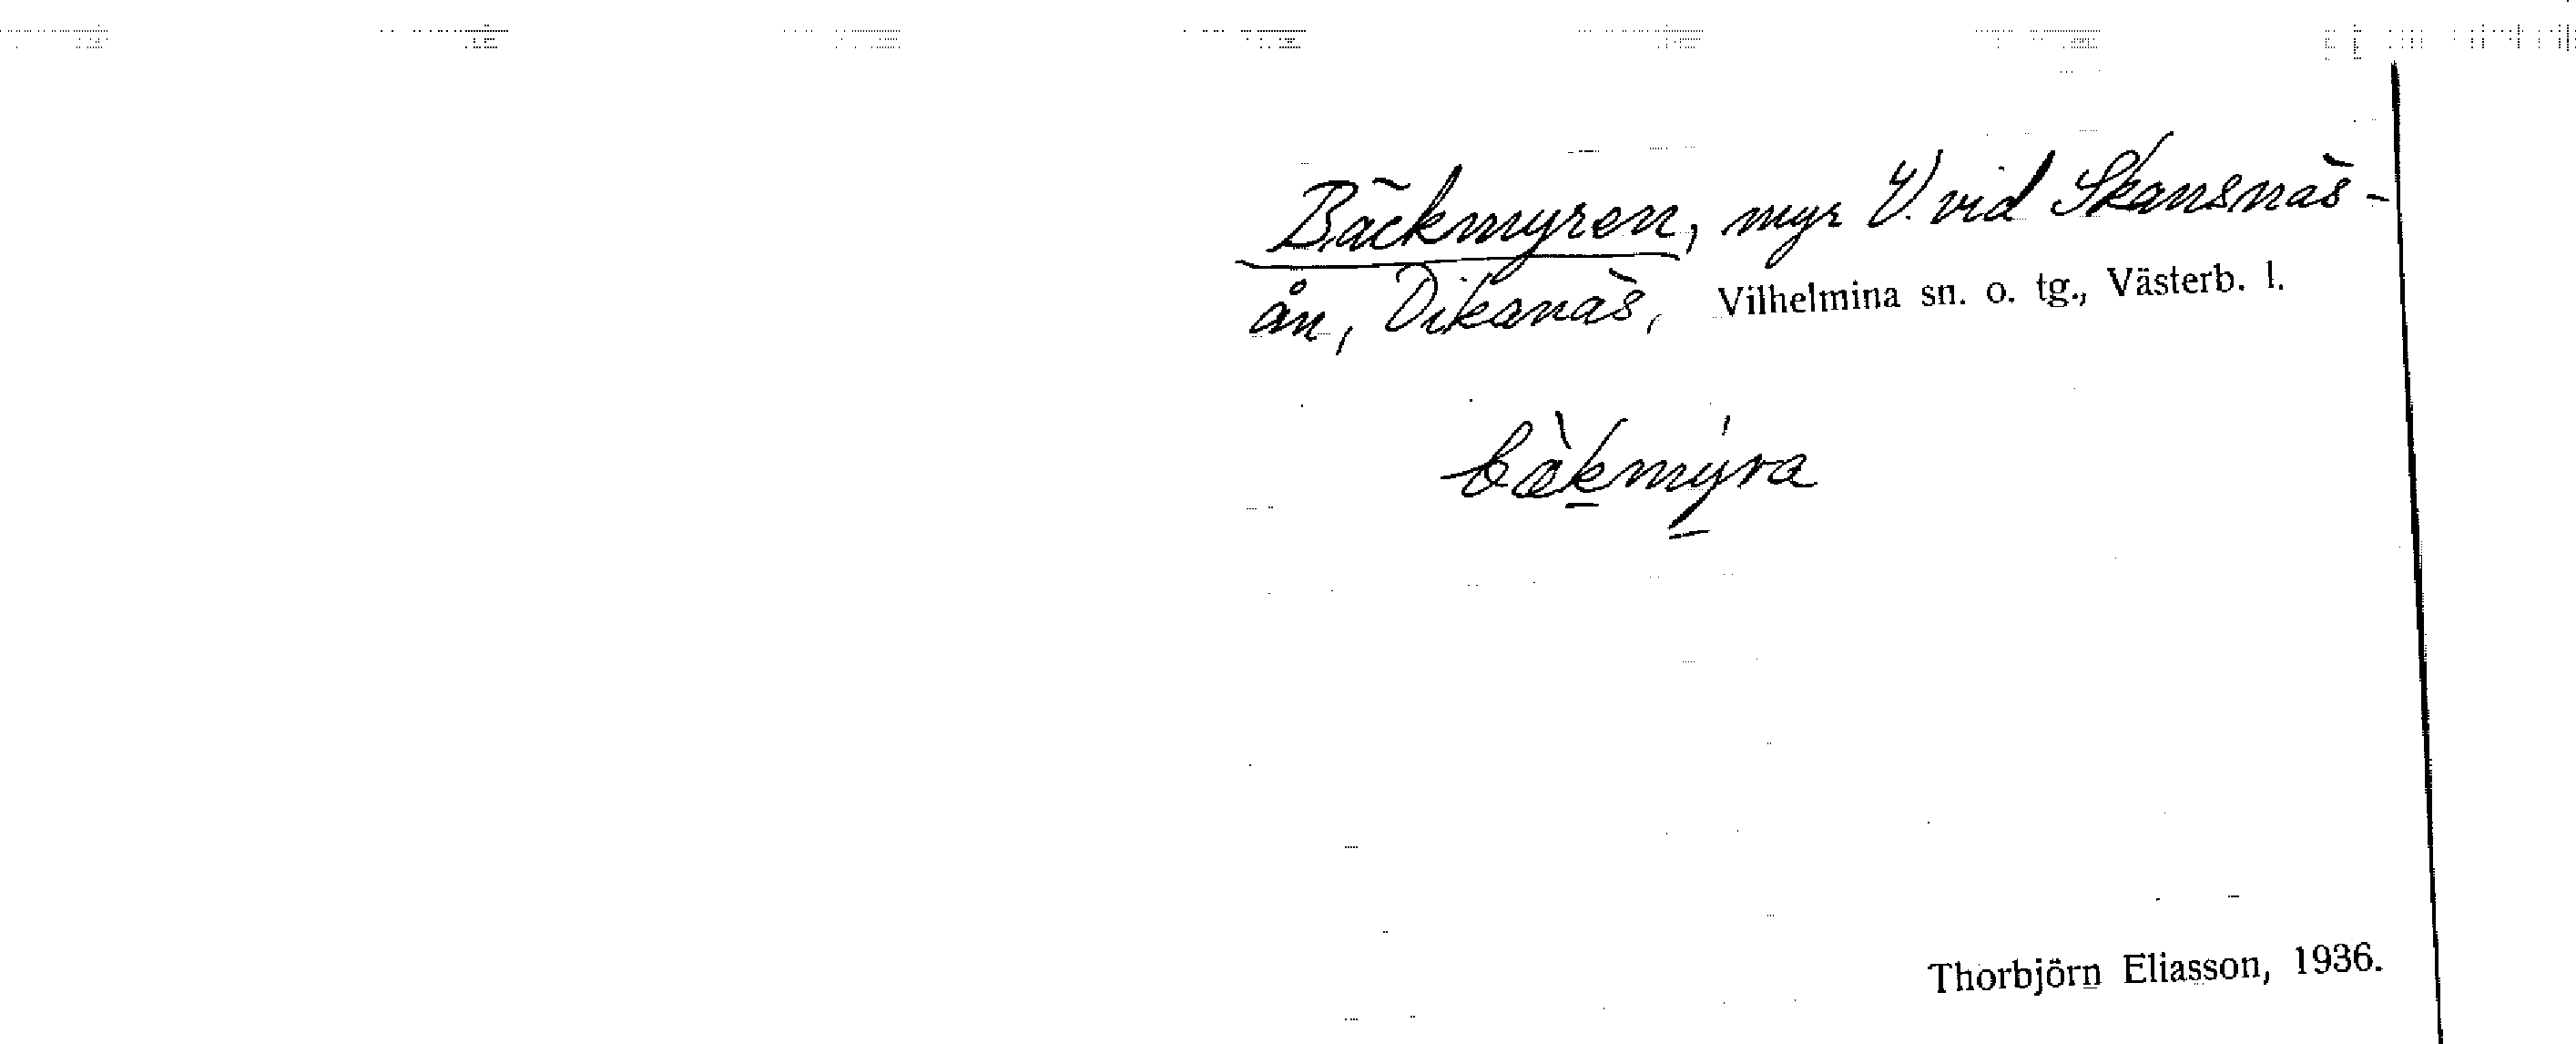 Bäckmyren, myr V. vid Skansnäs-
ån, Dikanäs, Vilhelmina sn. o. tg., Västerb. l.
bæ̀kmýra
Thorbjörn Eliasson, 1936.